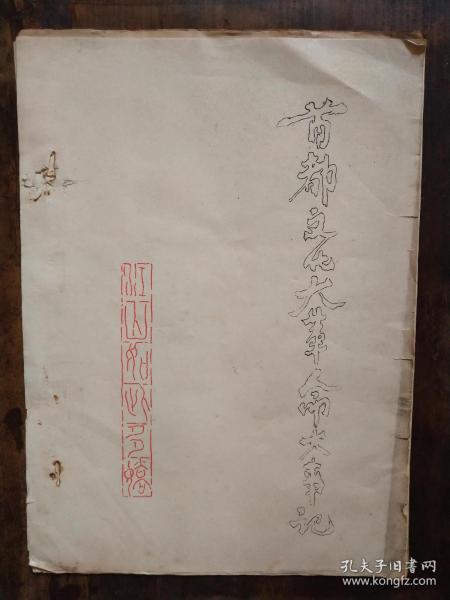 首都文化大革命大事记
江山如此多娇
孔夫子旧书网
www.kongfz.com